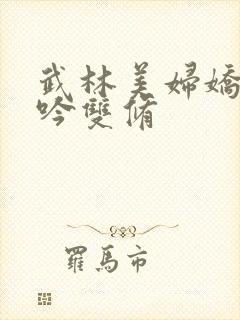 武林美婦嬌
吟雙脩
羅馬市